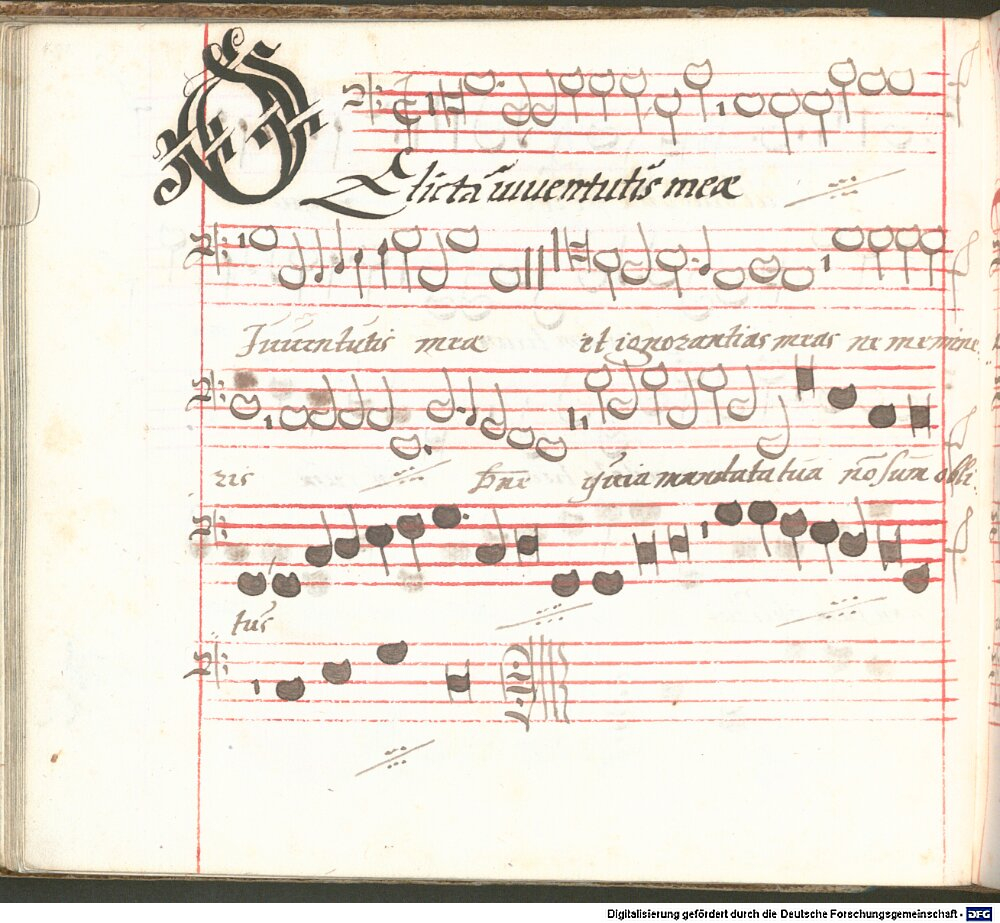 DElicta iuventutis meæ
Iuventutis meæ et ignorantias meas ne memine
ris Dñe quia mandata tua nõ sum obli
tus
Digitalisierung gefördert durch die Deutsche Forschungsgemeinschaft - DFG